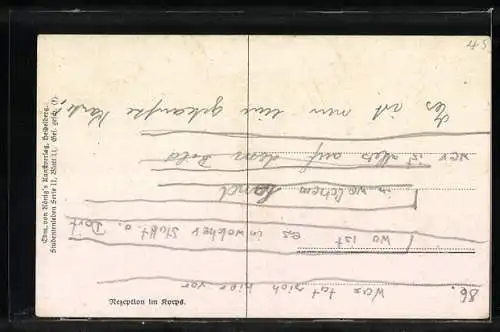 Edm. von König's Kunstverlag, Heidelberg.
Studentenleben Serie 11, Blatt 11, Ges. gesch.
Rezeption im Korps.
86. Was tut sich hier vor
wo ist es in welcher Stadt o. Dorf
in welchem Land
wer ist alles auf dem Bild
Es ist nun eine gekaufte Karte